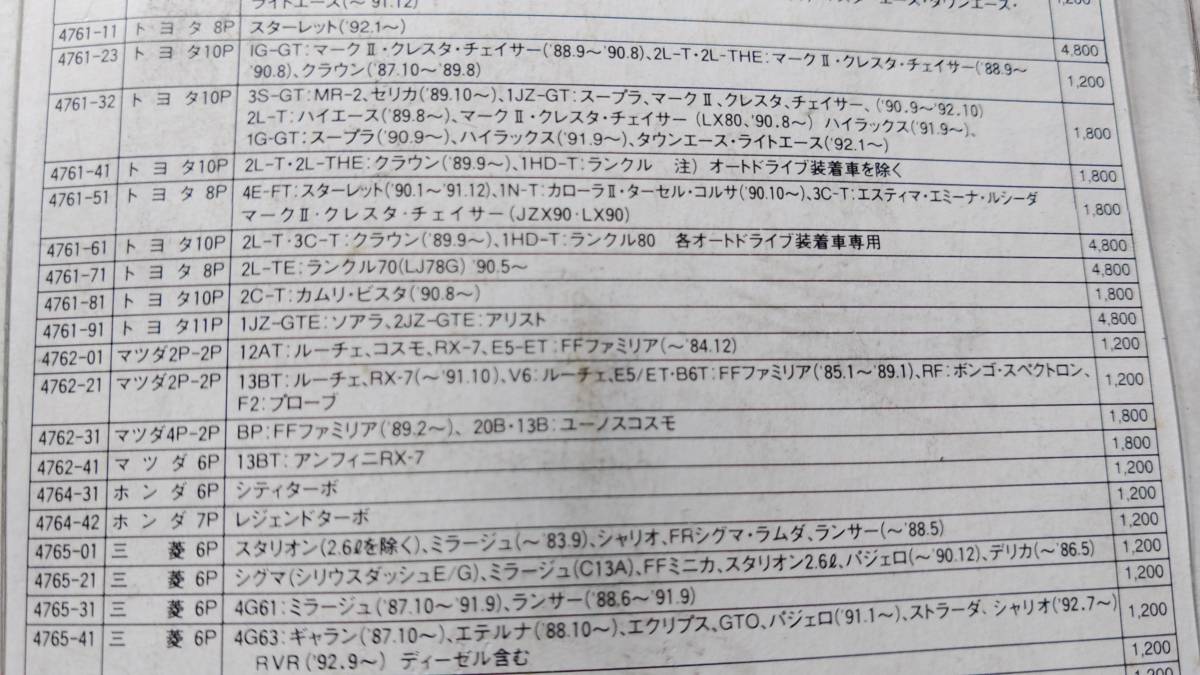 ライトエース(～'91.12) 1,200
4761-11 トヨタ 8P スターレット('92.1～) 4,800
4761-23 トヨタ10P 1G-GT:マークⅡ・クレスタ・チェイサー('88.9～'90.8)、2L-T・2L-THE:マークⅡ・クレスタ・チェイサー('88.9～ 1,200
'90.8)、クラウン('87.10～'89.8)
4761-32 トヨタ10P 3S-GT:MR-2、セリカ('89.10～)、1JZ-GT:スープラ、マークⅡ、クレスタ、チェイサー、('90.9～'92.10)
2L-T:ハイエース('89.8～)、マークⅡ・クレスタ・チェイサー(LX80、'90.8～) ハイラックス('91.9～)、 1,800
1G-GT:スープラ('90.9～)、ハイラックス('91.9～)、タウンエース・ライトエース('92.1～)
4761-41 トヨタ10P 2L-T・2L-THE:クラウン('89.9～)、1HD-T:ランクル 注)オートドライブ装着車を除く 1,800
4761-51 トヨタ 8P 4E-FT:スターレット('90.1～'91.12)、1N-T:カローラⅡ・ターセル・コルサ('90.10～)、3C-T:エスティマ・エミーナ・ルシーダ 1,800
マークⅡ・クレスタ・チェイサー(JZX90・LX90)
4761-61 トヨタ10P 2L-T・3C-T:クラウン('89.9～)、1HD-T:ランクル80 各オートドライブ装着車専用 4,800
4761-71 トヨタ 8P 2L-TE:ランクル70(LJ78G) '90.5～ 4,800
4761-81 トヨタ10P 2C-T:カムリ・ビスタ('90.8～) 1,800
4761-91 トヨタ11P 1JZ-GTE:ソアラ、2JZ-GTE:アリスト 4,800
4762-01 マツダ2P-2P 12AT:ルーチェ、コスモ、RX-7、E5-ET:FFファミリア(～'84.12) 1,200
4762-21 マツダ2P-2P 13BT:ルーチェ、RX-7(～'91.10)、V6:ルーチェ、E5/ET・B6T:FFファミリア('85.1～'89.1)、RF:ボンゴ・スペクトロン、 1,200
F2:プローブ
4762-31 マツダ4P-2P BP:FFファミリア('89.2～)、20B・13B:ユーノスコスモ 1,800
4762-41 マツダ 6P 13BT:アンフィニRX-7 1,800
4764-31 ホンダ 6P シティターボ 1,200
4764-42 ホンダ 7P レジェンドターボ 1,200
4765-01 三菱 6P スタリオン(2.6ℓを除く)、ミラージュ(～'83.9)、シャリオ、FRシグマ・ラムダ、ランサー(～'88.5) 1,200
4765-21 三菱 6P シグマ(シリウスダッシュE/G)、ミラージュ(C13A)、FFミニカ、スタリオン2.6ℓ、パジェロ(～'90.12)、デリカ(～'86.5) 1,200
4765-31 三菱 6P 4G61:ミラージュ('87.10～'91.9)、ランサー('88.6～'91.9) 1,200
4765-41 三菱 6P 4G63:ギャラン('87.10～)、エテルナ('88.10～)、エクリプス、GTO、パジェロ('91.1～)、ストラーダ、シャリオ('92.7～) 1,200
RVR('92.9～) ディーゼル含む
1,200
1,200